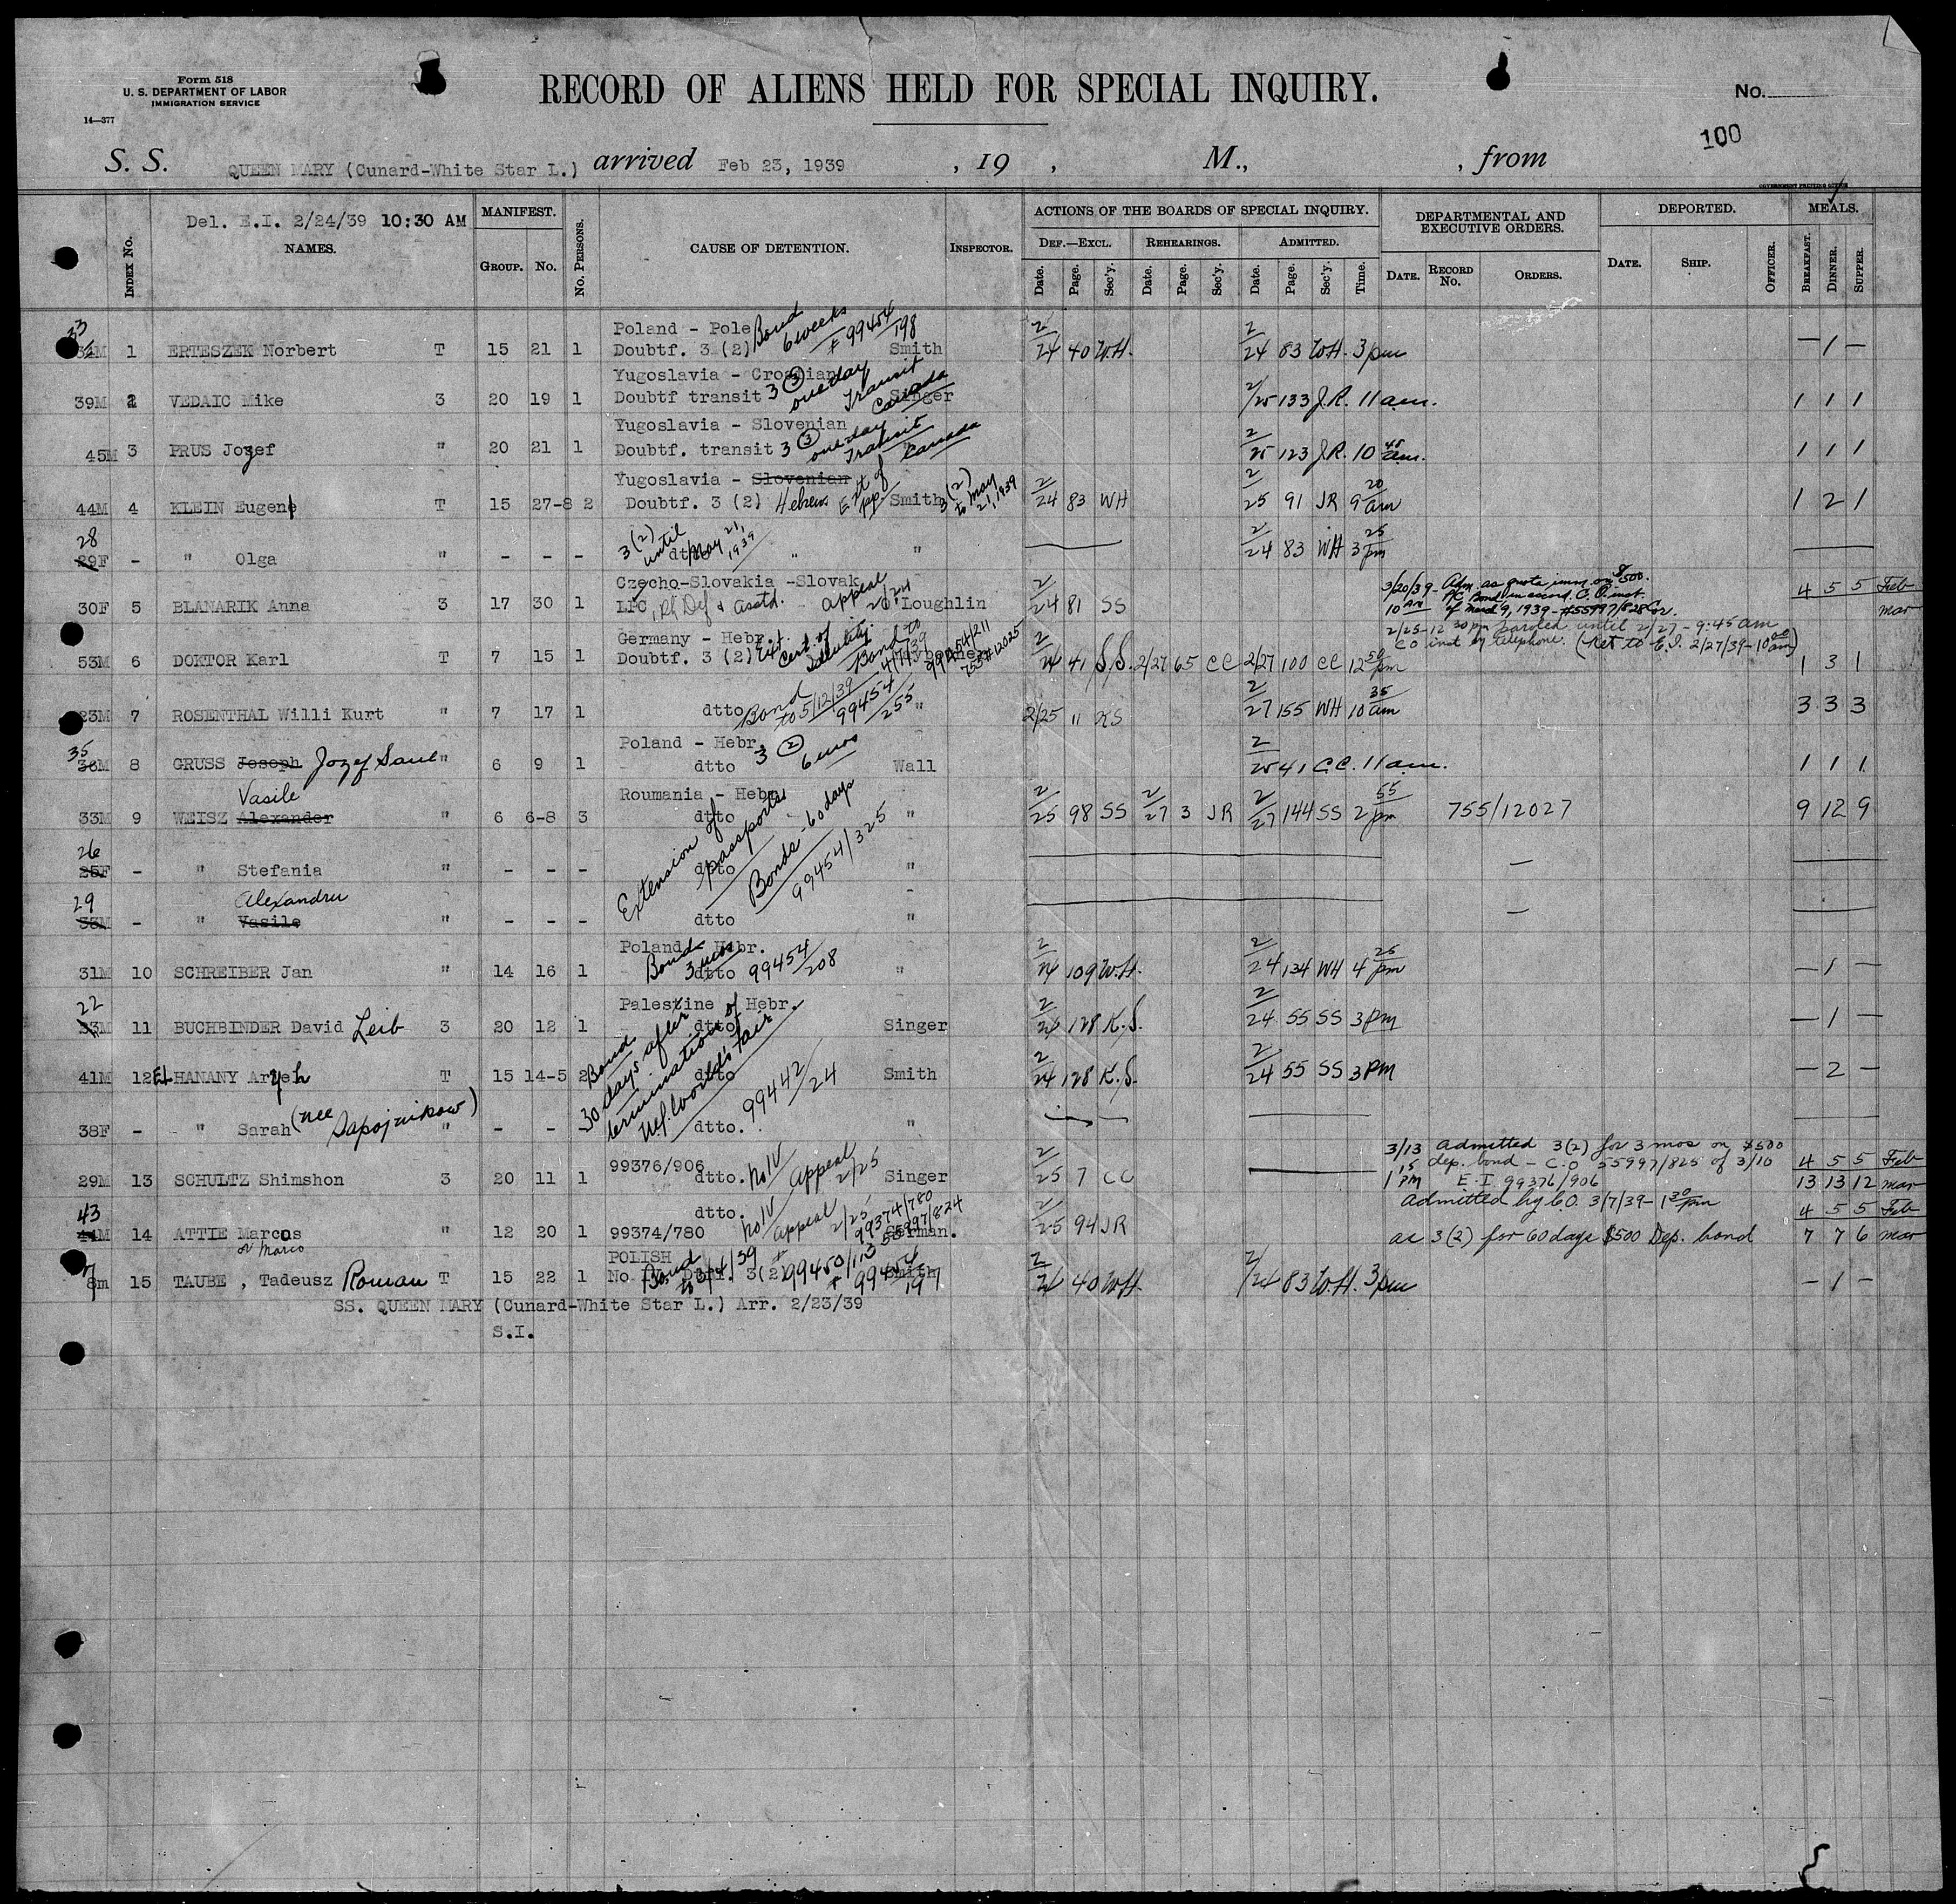 Form 518
U. S. DEPARTMENT OF LABOR
IMMIGRATION SERVICE
14—377
RECORD OF ALIENS HELD FOR SPECIAL INQUIRY.
No.
100
S. S. QUEEN MARY (Cunard-White Star L.) arrived Feb 23, 1939 , 19 , M., , from
GOVERNMENT PRINTING OFFICE
Del. E.I. 2/24/39 10:30 AM
INDEX NO. NAMES. MANIFEST. GROUP. NO. NO. PERSONS. CAUSE OF DETENTION. INSPECTOR.
ACTIONS OF THE BOARDS OF SPECIAL INQUIRY.
DEF.—EXCL. REHEARINGS. ADMITTED.
Date. Page. Sec'y. Date. Page. Sec'y. Date. Page. Sec'y. Time.
DEPARTMENTAL AND EXECUTIVE ORDERS.
DATE. RECORD NO. ORDERS.
DEPORTED.
DATE. SHIP. OFFICER.
MEALS.
BREAKFAST. DINNER. SUPPER.
Poland - Pole Bond 6 weeks # 99454/198
33 1 ERTESZEK Norbert T 15 21 1 Doubtf. 3 (2) Smith 2/24 40 W.H. 2/24 83 W.H. 3 pm — 1 —
Yugoslavia - Croatian
39M 2 VEDAIC Mike 3 20 19 1 Doubtf transit 3 (3) one day Transit Canada Singer 2/25 133 J.R. 11 am. 1 1 1
Yugoslavia - Slovenian
45M 3 PRUS Jozef " 20 21 1 Doubtf. transit 3 (3) one day Transit Canada " 2/25 123 J.R. 10 45 am. 1 1 1
Yugoslavia - Slovenian
44M 4 KLEIN Eugene T 15 27-8 2 Doubtf. 3 (2) Hebrew Ext of pp. Smith 3(2) to May 21, 1939 2/24 83 WH 2/25 91 JR 9 20 am 1 2 1
28 29F - " Olga " - - - dtto 3(2) until May 21, 1939 " " 2/24 83 WH 3 25 pm
Czecho-Slovakia -Slovak
30F 5 BLANARIK Anna 3 17 30 1 LPC, Pl. Def & asstd. Appeal 2/24 O'Loughlin 2/24 81 SS 4 5 5 Feb
3/20/39 - Adm as quota imm. on $500.
10 AM P/C Bond in accord. C.O. inst.
of March 9, 1939 - #55997/828 Cor. Mar
Germany - Hebr.
53M 6 DOKTOR Karl T 7 15 1 Doubtf. 3 (2) Ext. Cert. of Identity. Bond to 4/7/39 99454/211 755#12025 2/24 41 S.S. 2/27 65 CC 2/27 100 CC 12 50 pm 1 3 1
2/25-12 30 pm Paroled until 2/27 - 9:45 am
CO inst by telephone. (Ret to E.I. 2/27/39 - 10 am)
23M 7 ROSENTHAL Willi Kurt " 7 17 1 dtto Bond to 5/12/39 99454/255 " 2/25 11 KS 2/27 155 WH 10 35 am 3 3 3
Poland - Hebr.
35 36M 8 GRUSS Joseph Jozef Saul " 6 9 1 dtto 3 (2) 6 mos Wall 2/25 41 C.C. 11 am. 1 1 1
Roumania - Hebr.
33M 9 WEISZ Alexander Vasile " 6 6-8 3 dtto " 2/25 98 SS 2/27 3 JR 2/27 144 SS 2 55 pm 755/12027 9 12 9
Extension of passports Bonds - 60 days 99454/325
26 25F - " Stefania " - - - dtto " —
29 33M - " Vasile Alexandru " - - - dtto " —
Poland - Hebr.
31M 10 SCHREIBER Jan " 14 16 1 dtto Bond 3 mos 99454/208 " 2/24 109 W.H. 2/24 134 WH 4 25 pm — 1 —
Palestine - Hebr.
22 33M 11 BUCHBINDER David Leib 3 20 12 1 dtto Singer 2/24 128 K.S. 2/24 55 SS 3 pm — 1 —
41M 12 EL HANANY Aryeh T 15 14-5 2 dtto Smith 2/24 128 K.S. 2/24 55 SS 3 PM — 2 —
Bond 30 days after termination of N.Y. World's Fair 99442/24
38F - " Sarah (nee Sapojnikow) " - - dtto. "
29M 13 SCHULTZ Shimshon 3 20 11 1 99376/906 dtto. No IV Appeal 2/25 Singer 2/25 7 CC 4 5 5 Feb
3/13 Admitted 3(2) for 3 mos on $500
1 15 PM dep. bond - C.O 55997/825 of 3/10
E.I 99376/906 13 13 12 Mar
43 44M 14 ATTIE Marcos or Marco " 12 20 1 99374/780 dtto. No IV Appeal 2/25 99374/780 55997/824 German. 2/25 94 JR 4 5 5 Feb
Admitted by C.O. 3/7/39 - 1 30 pm
as 3(2) for 60 days $500 Dep. bond 7 7 6 Mar
POLISH
8m 15 TAUBE , Tadeusz Roman T 15 22 1 No. IV Dbtf. 3(2) Smith 2/24 40 WH 2/24 83 W.H. 3 pm — 1 —
SS. QUEEN MARY (Cunard-White Star L.) Arr. 2/23/39
S.I.